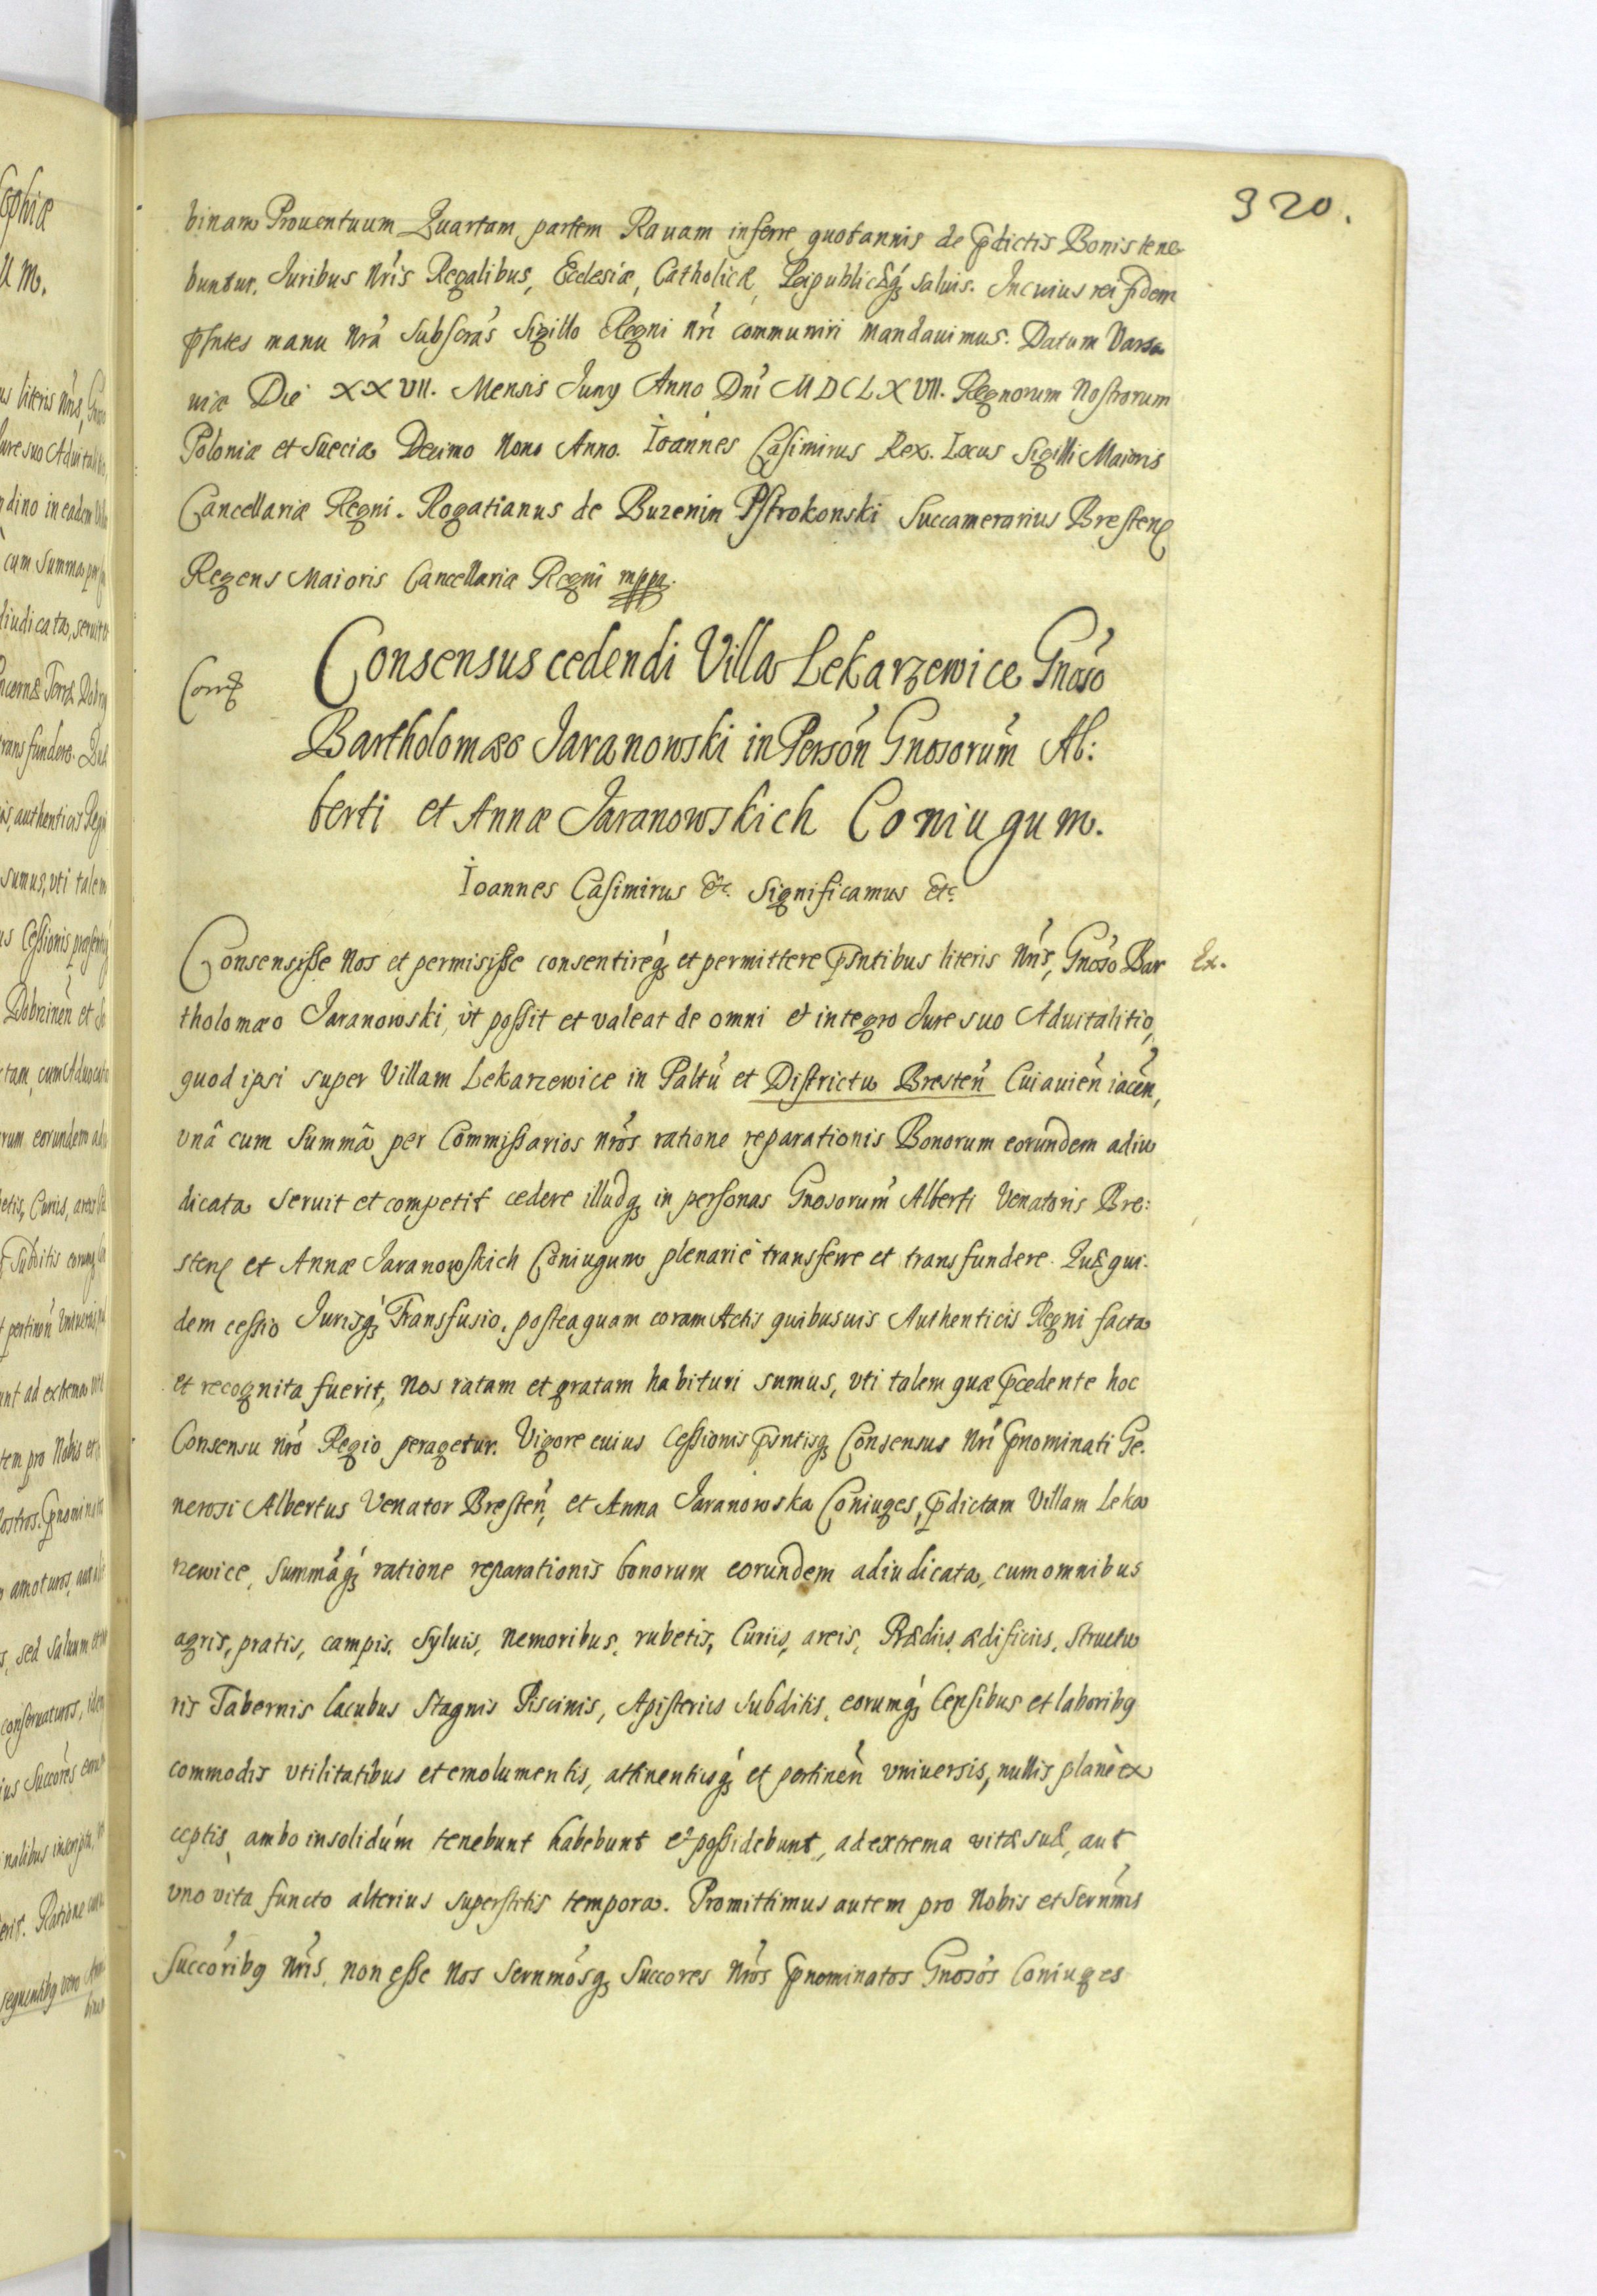 320.
binam Prouentuum Quartam partem Rauam inferre quotannis de p̃dictis Bonis tene-
buntur. Iuribus nr̃is Regalibus, Ecclesiæ, Catholicæ, Reipublicæq́ꝫ saluis. In cuius rei fidem
p̃sntes manu nrã subscrãs Sigillo Regni nr̃i communiri mandauimus. Datum Varsa
uiæ Die XXVII. Mensis Iuny Anno Dnĩ MDCLXVII. Regnorum Nostrorum
Poloniæ et Sueciæ Decimo Nono Anno. Ioannes Casimirus Rex. Locus Sigilli Maioris
Cancellariæ Regni. Rogatianus de Buzenin Pstrokonski Succamerarius Bresteñ
Regens Maioris Cancellariæ Regni mppa.
Consensus cedendi Villa Lekarzewice Gnoso
Corr
Bartholomæo Jaranowski in Personˀ Gnosorumˀ Al:
berti et Annæ Jaranowskich Coniugum.
Ioannes Casimirus &c. Significamus etc.
Consensisse Nos et permisisse consentireq́ꝫ et permittere p̃sntibus literis nr̃is, Gnoso Bar
Ex.
tholomæo Jaranowski, ùt possit et valeat de omni et integro Iure suo Aduitalitio,
quod ipsi super Villam Lekarzewice in Palt̃u et Districtu Bresteñ Cuiauieñ iaceñ,
vnâ cum Summâ per Commissarios nr̃os ratione reparationis Bonorum eorundem adiu
dicata seruit et competit cedere illudqꝫ in personas Gnosorum̃ Alberti Venatoris Bre:
steñ et Annæ Jaranowskich Coniugum plenariè transferre et transfundere. Quæ qui:
dem cessio Iurisq́ꝫ Transfusio, posteaquam coram Actis quibusuis Authenticis Regni facta
et recognita fuerit, Nos ratam et gratam habituri sumus, vti talem quæ p̃cedente hoc
Consensu nrõ Regio peragetur. Vigore cuius Cessionis p̃sntisqꝫ Consensus nr̃i p̃nominati Ge.
nerosi Albertus Venator Bresteñ, et Anna Jaranowska Coniuges, p̃dictam Villam Leka
rzewice, Summãq́ꝫ ratione reparationis bonorum eorundem adiudicata, cum omnibus
agris, pratis, campis, Syluis, nemoribus, rubetis, Curiis, areis, Prædiis, ædificiis, Structu
ris Tabernis lacubus Stagnis Piscinis, Apisteriis Subditis, eorumq́ꝫ Censibus et laboribꝫ
commodis vtilitatibus et emolumentis, attinentiisq́ꝫ et pertineñ vniuersis, nullis planè ex
ceptis, ambo insolidúm tenebunt habebunt et possidebunt, ad extrema vitæ suæ, aut
vno vita functo alterius superstitis tempora. Promittimus autem pro Nobis et Sernm̃is
Succoribꝫ nr̃is, non esse Nos Sernmosqꝫ Succores nr̃os p̃nominatos Gnosos Coniuges